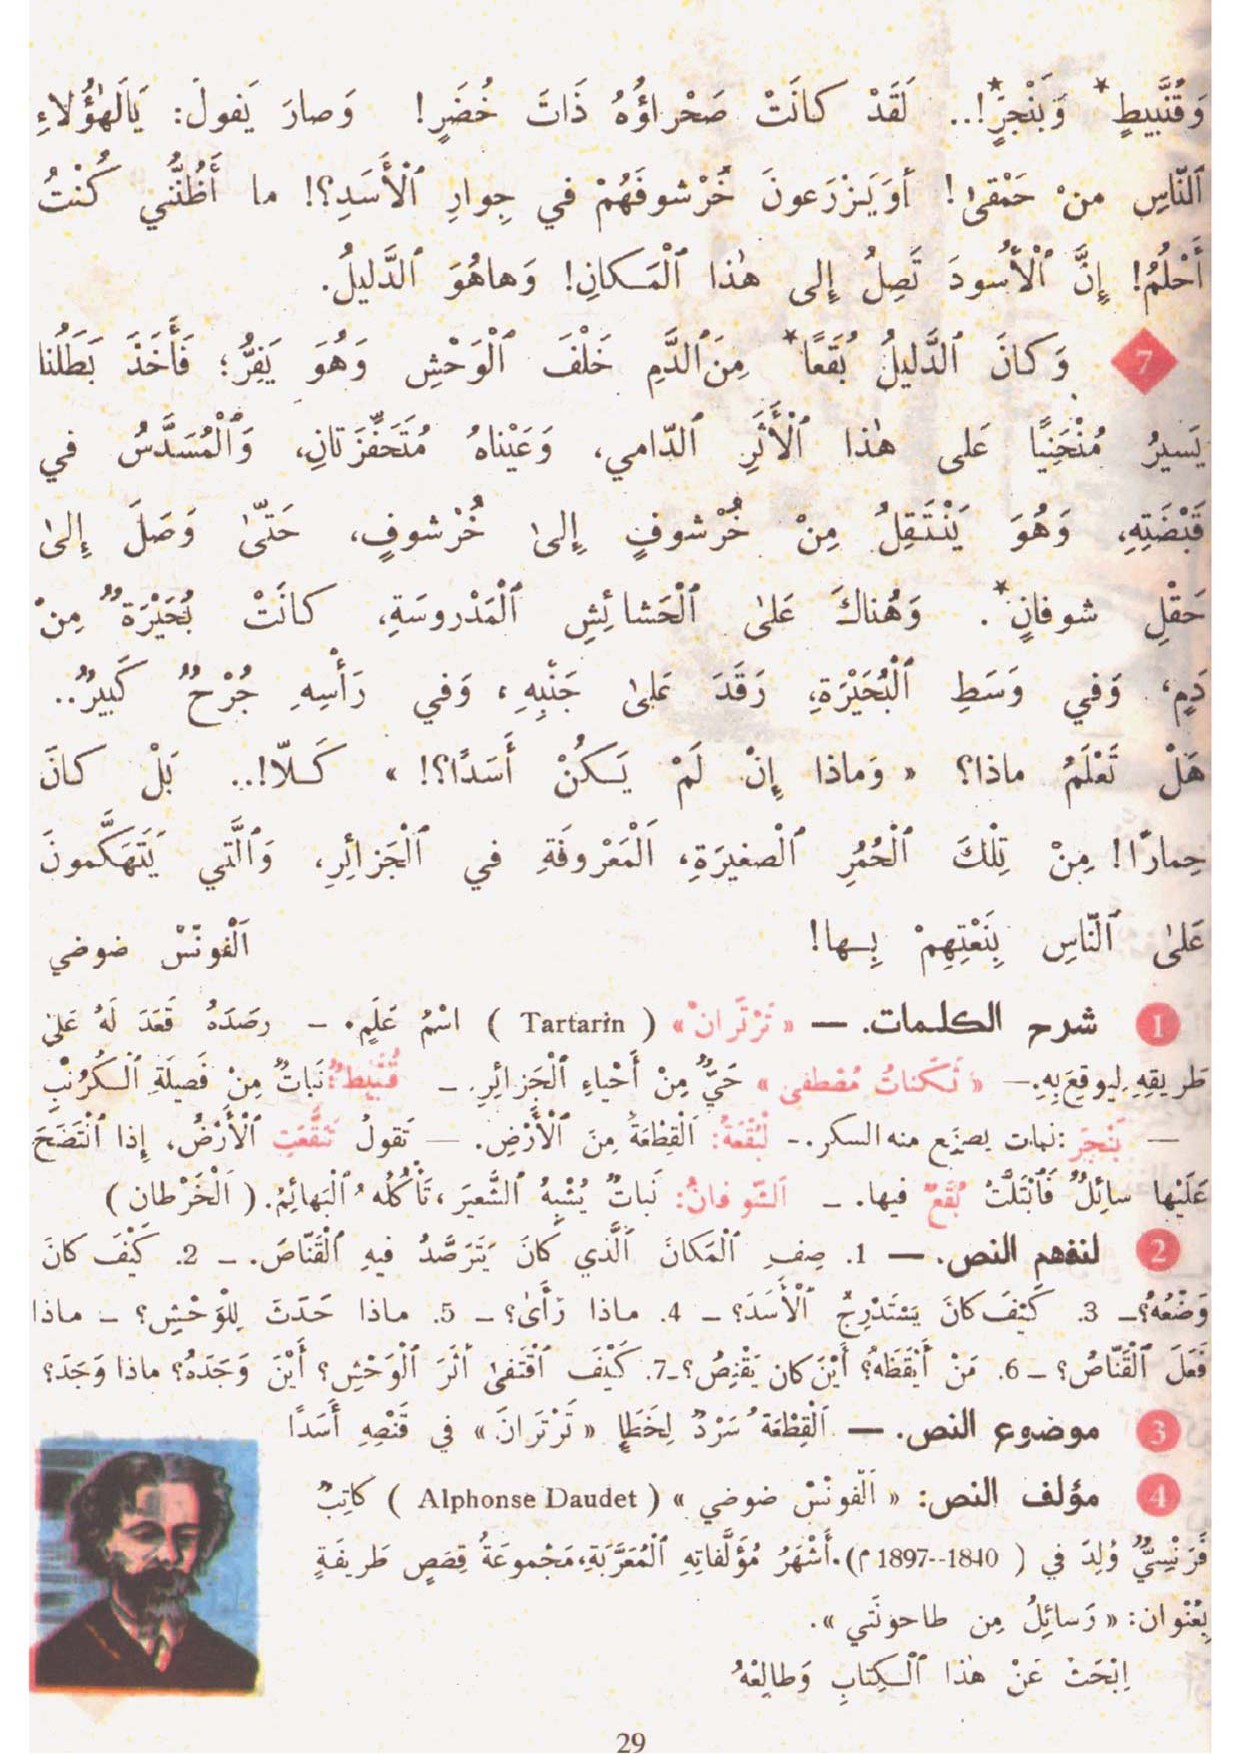 وَقُنَّبِيطٍ* وَبَنْجَرٍ*!.. لَقَدْ كانَتْ صَحْراؤُهُ ذَاتَ خُضَرٍ! وَصارَ يَقولُ: يَالَهٰؤُلاءِ
ٱلنّاسِ مِنْ حَمْقىٰ! أَوَيَزْرَعونَ خُرْشوفَهُمْ في جِوارِ ٱلْأَسَدِ؟! ما أَظُنُّني كُنْتُ
أَحْلُمُ! إِنَّ ٱلْأُسودَ تَصِلُ إِلى هٰذا ٱلْمَكانِ! وَهاهُوَ ٱلدَّليلُ.
7 وَكانَ ٱلدَّليلُ بُقَعًا* مِنَ ٱلدَّمِ خَلْفَ ٱلْوَحْشِ وَهُوَ يَفِرُّ؛ فَأَخَذَ بَطَلُنا
يَسيرُ مُنْحَنِيًا عَلى هٰذا ٱلْأَثَرِ ٱلدّامي، وَعَيْناهُ مُتَحَفِّزَتانِ، وَٱلْمُسَدَّسُ في
قَبْضَتِهِ، وَهُوَ يَنْتَقِلُ مِنْ خُرْشوفٍ إِلىٰ خُرْشوفٍ، حَتّىٰ وَصَلَ إِلىٰ
حَقْلِ شوفانٍ*. وَهُناكَ عَلىٰ ٱلْحَشائِشِ ٱلْمَدْروسَةِ، كانَتْ بُحَيْرَةٌ مِنْ
دَمٍ، وَفي وَسَطِ ٱلْبُحَيْرَةِ، رَقَدَ عَلىٰ جَنْبِهِ، وَفي رَأْسِهِ جُرْحٌ كَبيرٌ..
هَلْ تَعْلَمُ ماذا؟ « وَماذا إِنْ لَمْ يَكُنْ أَسَدًا؟! » كَلّا!.. بَلْ كانَ
حِمارًا! مِنْ تِلْكَ ٱلْحُمُرِ ٱلْصغيرَةِ، اَلْمَعْروفَةِ في ٱلْجَزائِرِ، وَٱلَّتي يَتَهَكَّمونَ
عَلىٰ ٱلنّاسِ بِنَعْتِهِمْ بِها! اَلْفونْسْ ضوضي
1 شرح الكلمات. — « تَرْتَرانْ » ( Tartarin ) اسْمُ عَلَمٍ. – رصَدَهُ قَعَدَ لَهُ عَلىٰ
طَريقِهِ لِيوقِعَ بِهِ. — « ثَكَناتُ مُصْطفى » حَيٌّ مِنْ أَحْياءِ ٱلْجَزائِرِ. – قُنَّبِيطٌ: نَباتٌ مِنْ فَصيلَةِ ٱلْكُرُنْبِ
— بَنْجَرَ: نبات يصنع منه السكر. – لْبُقْعَةُ: اَلْقِطْعَةُ مِنَ ٱلْأَرْضِ. — تَقولُ تَبَقَّعَتِ ٱلْأَرْضُ، إِذا ٱنْتَضَحَ
عَلَيْها سائِلٌ فَٱبْتَلَّتْ بُقَعٌ فيها. – اَلشّوفانُ: نَباتٌ يُشْبِهُ ٱلشَّعيرَ، تَأْكُلُهُ ٱلْبَهائِمُ. ( اَلْخَرْطان )
2 لنفهم النص. — 1. صِفِ ٱلْمَكانَ ٱلَّذي كانَ يَتَرَصَّدُ فيهِ ٱلْقَنّاصُ. – 2. كَيْفَ كانَ
وَضْعُهُ؟– 3. كَيْفَ كانَ يَسْتَدْرِجُ ٱلْأَسَدَ؟ – 4. ماذا رَأىٰ؟ – 5. ماذا حَدَثَ لِلْوَحْشِ؟ – ماذا
فَعَلَ ٱلْقَنّاصُ؟ – 6. مَنْ أَيْقَظَهُ؟ أَيْنَ كان يَقْنِصُ؟ –7. كَيْفَ ٱقْتَفىٰ أَثَرَ ٱلْوَحْشِ؟ أَيْنَ وَجَدَهُ؟ ماذا وَجَدَ؟
3 موضوع النص. — اَلْقِطْعَةُ سَرْدٌ لِخَطَإِ « تَرْتَرانَ » في قَنْصِهِ أَسَدًا
4 مؤلف النص: « اَلْفونْسْ ضوضي » ( Alphonse Daudet ) كاتِبٌ
فَرَنْسِيٌّ وُلِدَ في ( 1840--1897 م). أَشْهَرُ مُؤَلَّفاتِهِ ٱلْمُعَرَّبَةِ، مَجْموعَةُ قِصَصٍ طَريفَةٍ
بِعُنْوان: « رَسائِلُ مِن طاحونَتي ».
اِبْحَثْ عَنْ هٰذا ٱلْكِتابِ وَطالِعْهُ
29